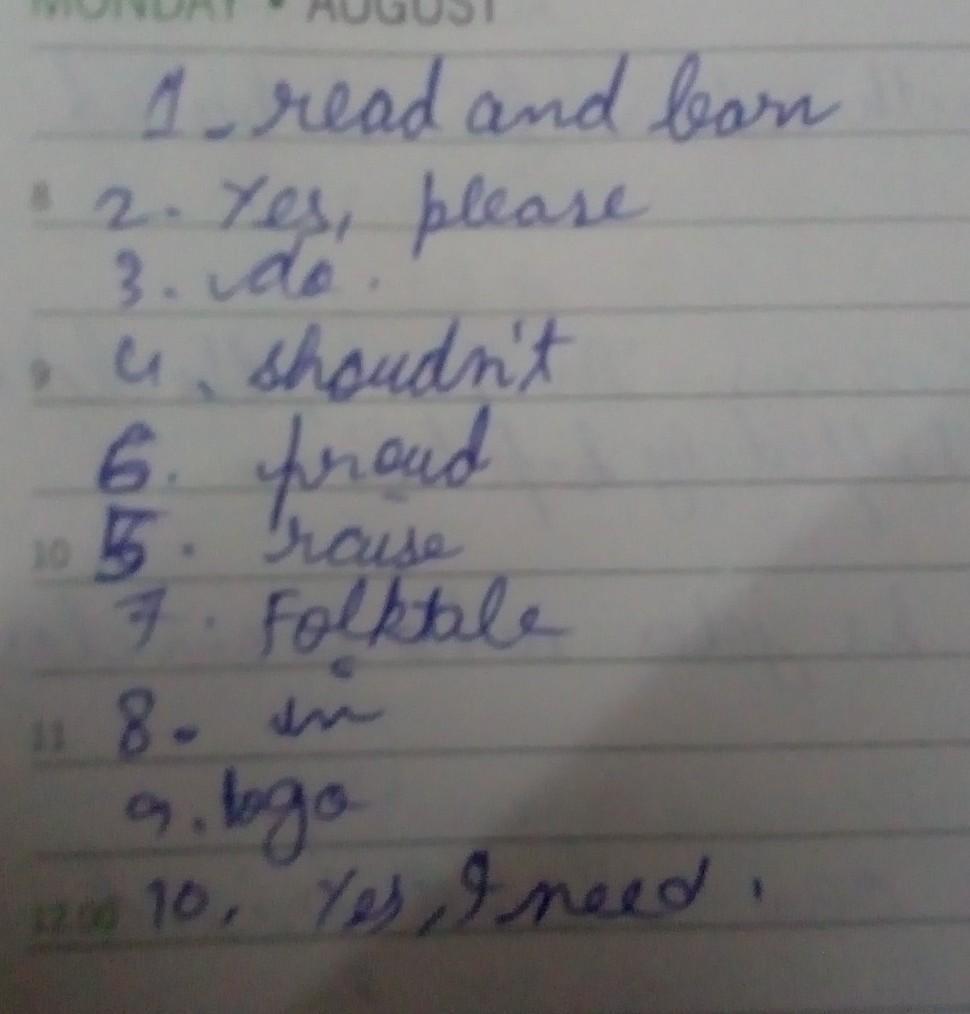 MONDAY • AUGUST
1 - read and learn
8
2. Yes, please
3. do.
9
4. shoudn't
6. proud
10
5. rause
7. Folktale
8. in
11
9. logo
12:00
10. Yes, I need.